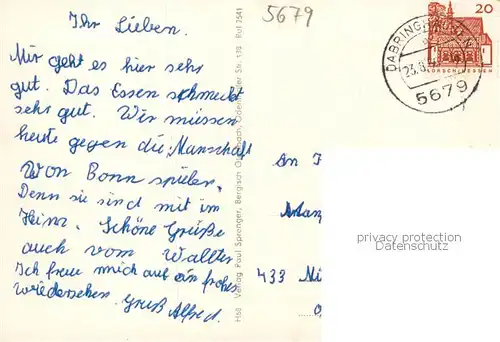 Ihr Lieben.
Mir geht es hier sehr
gut. Das Essen schmeckt
sehr gut. Wir müssen
heute gegen die Manschaft
Won Bonn spielen.
Denn sie sind mit im
Heim. Schöne Grüße
auch vom Wallter
Ich freue mich auf ein frohes
wiedersehen. Gruß Alfred.
5679
20
DABRINGHAUSEN
23.8.
5679
LORSCH/HESSEN
Verlag Paul Sprenger, Bergisch Gladbach, Odenthaler Str. 198 Ruf 2541
An
433
privacy protection
DARABANTH